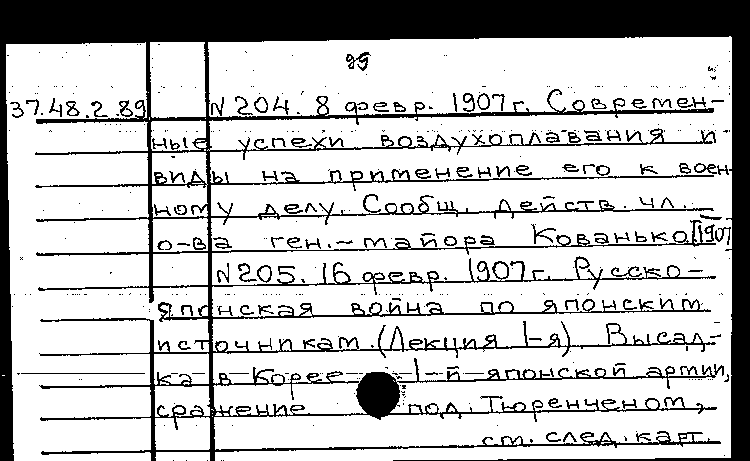 95
37.48.2.89 N 204. 8 февр. 1907 г. Современ-
ные успехи воздухоплавания и
виды на применение его к воен-
ному делу. Сообщ. действ. чл.
о-ва ген.-майора Кованько [1907
N 205. 16 февр. 1907 г. Русско-
японская война по японским
источникам. (Лекция 1-я). Высад-
ка в Корее 1-й японской армии,
сражение под Тюренченом,
см. след. карт.